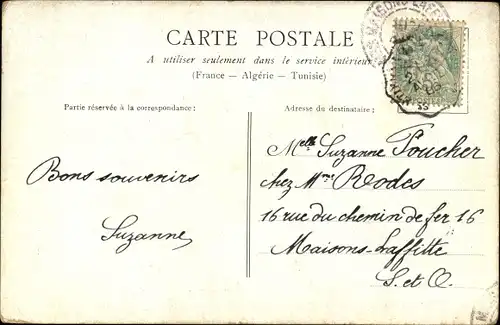 CARTE POSTALE
A utiliser seulement dans le service intérieur
(France — Algérie — Tunisie)
Partie réservée à la correspondance:
Adresse du destinataire:
Bons souvenirs
Suzanne
Melle Suzanne Foucher
chez Mme Rodes
16 rue du chemin de fer 16
Maisons-Laffitte
S. et O.